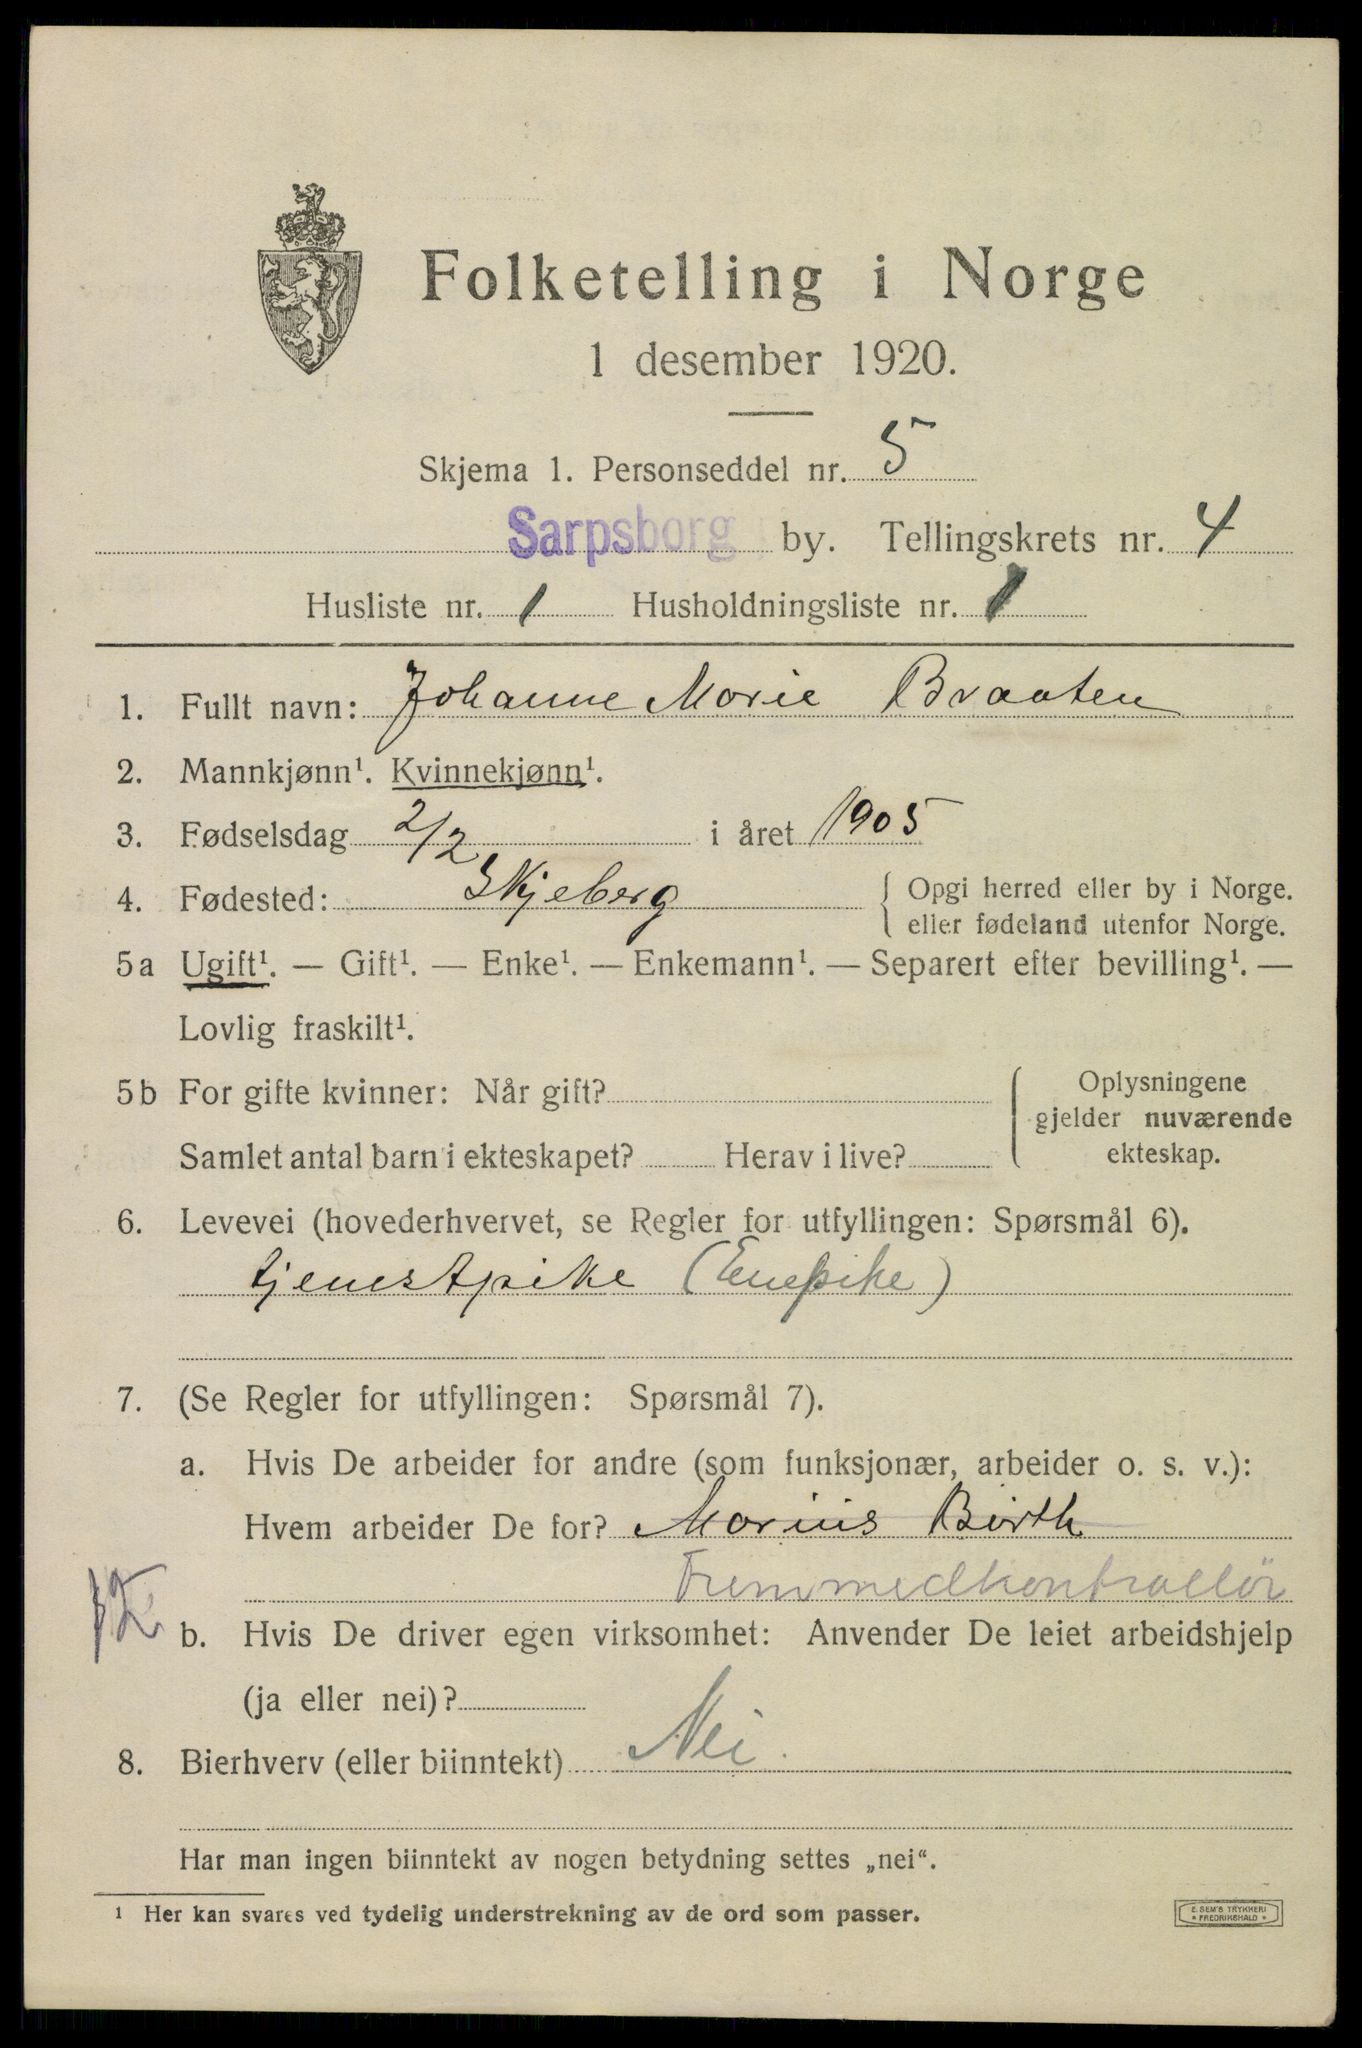 Folketelling i Norge
1 desember 1920.
Skjema 1. Personseddel nr. 5
Sarpsborg by. Tellingskrets nr. 4
Husliste nr. 1 Husholdningsliste nr. 1
1. Fullt navn: Johanne Marie Braaten
2. Mannkjønn¹. Kvinnekjønn¹.
3. Fødselsdag 2/2 i året 1905
4. Fødested: Skjeberg { Opgi herred eller by i Norge.
eller fødeland utenfor Norge.
5a Ugift¹. — Gift¹. — Enke¹. — Enkemann¹. — Separert efter bevilling¹. —
Lovlig fraskilt¹.
5b For gifte kvinner: Når gift?
Samlet antal barn i ekteskapet? Herav i live?
Oplysningene
gjelder nuværende
ekteskap.
6. Levevei (hovederhvervet, se Regler for utfyllingen: Spørsmål 6).
tjenestpike (Enepike)
7. (Se Regler for utfyllingen: Spørsmål 7).
a. Hvis De arbeider for andre (som funksjonær, arbeider o. s. v.):
Hvem arbeider De for? Marius Birth
b. Hvis De driver egen virksomhet: Anvender De leiet arbeidshjelp
(ja eller nei)?
8. Bierhverv (eller biinntekt) Nei.
Har man ingen biinntekt av nogen betydning settes „nei“.
¹ Her kan svares ved tydelig understrekning av de ord som passer.
E. SEM'S TRYKKERI
* FREDRIKSHALD *